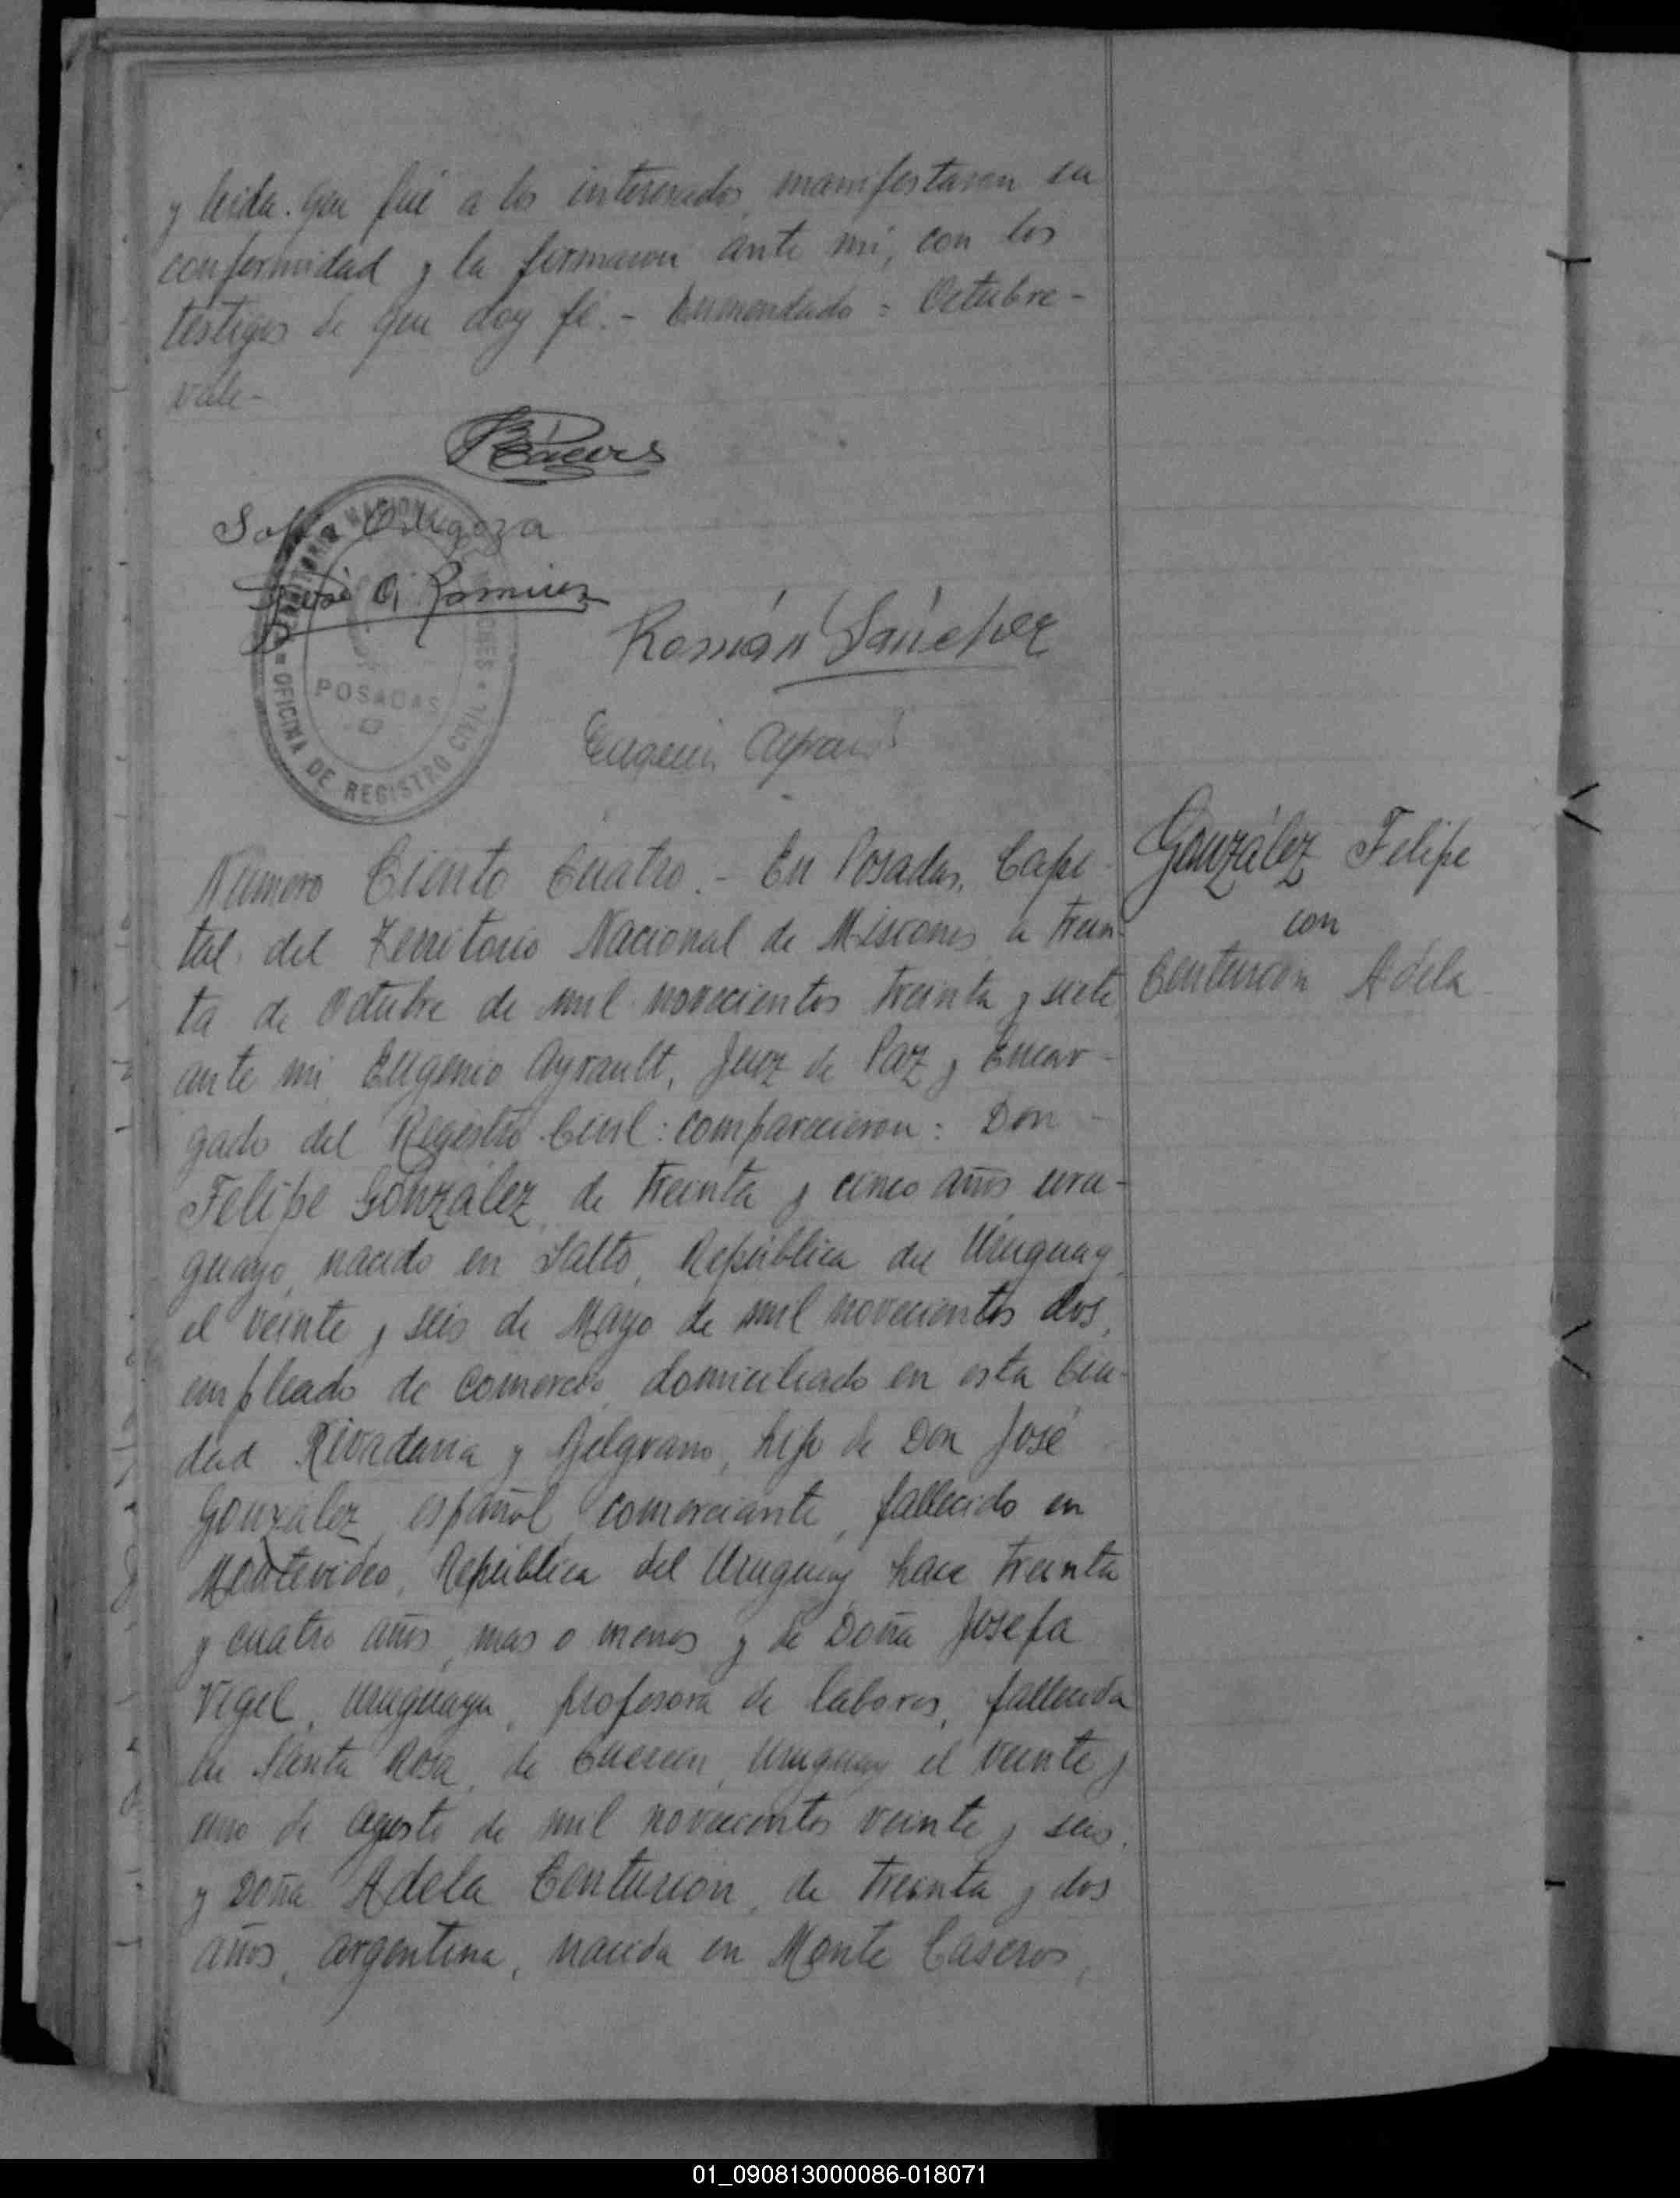 y leida que fué a los interesados, manifestaron su
conformidad y la firmaron ante mi, con los
testigos de que doy fé.- Enmendado = Octubre -
vale-
Sofia
José Ramirez
Román Sánchez
Eugenio Ayrault
TERRITORIO NACIONAL DE MISIONES
OFICINA DE REGISTRO CIVIL
POSADAS
Número Ciento Cuatro.- En Posadas, Capi-
tal del Territorio Nacional de Misiones a trein-
ta de Octubre de mil novecientos treinta y siete
ante mi Eugenio Ayrault, Juez de Paz y Encar-
gado del Registro Civil: comparecieron: Don -
Felipe González, de treinta y cinco años, uru-
guayo, nacido en Salto, República del Uruguay
el veinte y seis de Mayo de mil novecientos dos,
empleado de comercio, domiciliado en esta Ciu-
dad Rivadavia y Belgrano, hijo de Don José
González, español, comerciante, fallecido en
Montevideo, República del Uruguay hace treinta
y cuatro años, mas o menos y de Doña Josefa
Vigil, uruguaya, profesora de labores, fallecida
en Santa Rosa, de Uruguay el veinte y
uno de Agosto de mil novecientos veinte y seis.
y Doña Adela Centurion, de treinta y dos
años, argentina, nacida en Monte Caseros,
González Felipe
con
Centurión Adela
01_090813000086-018071